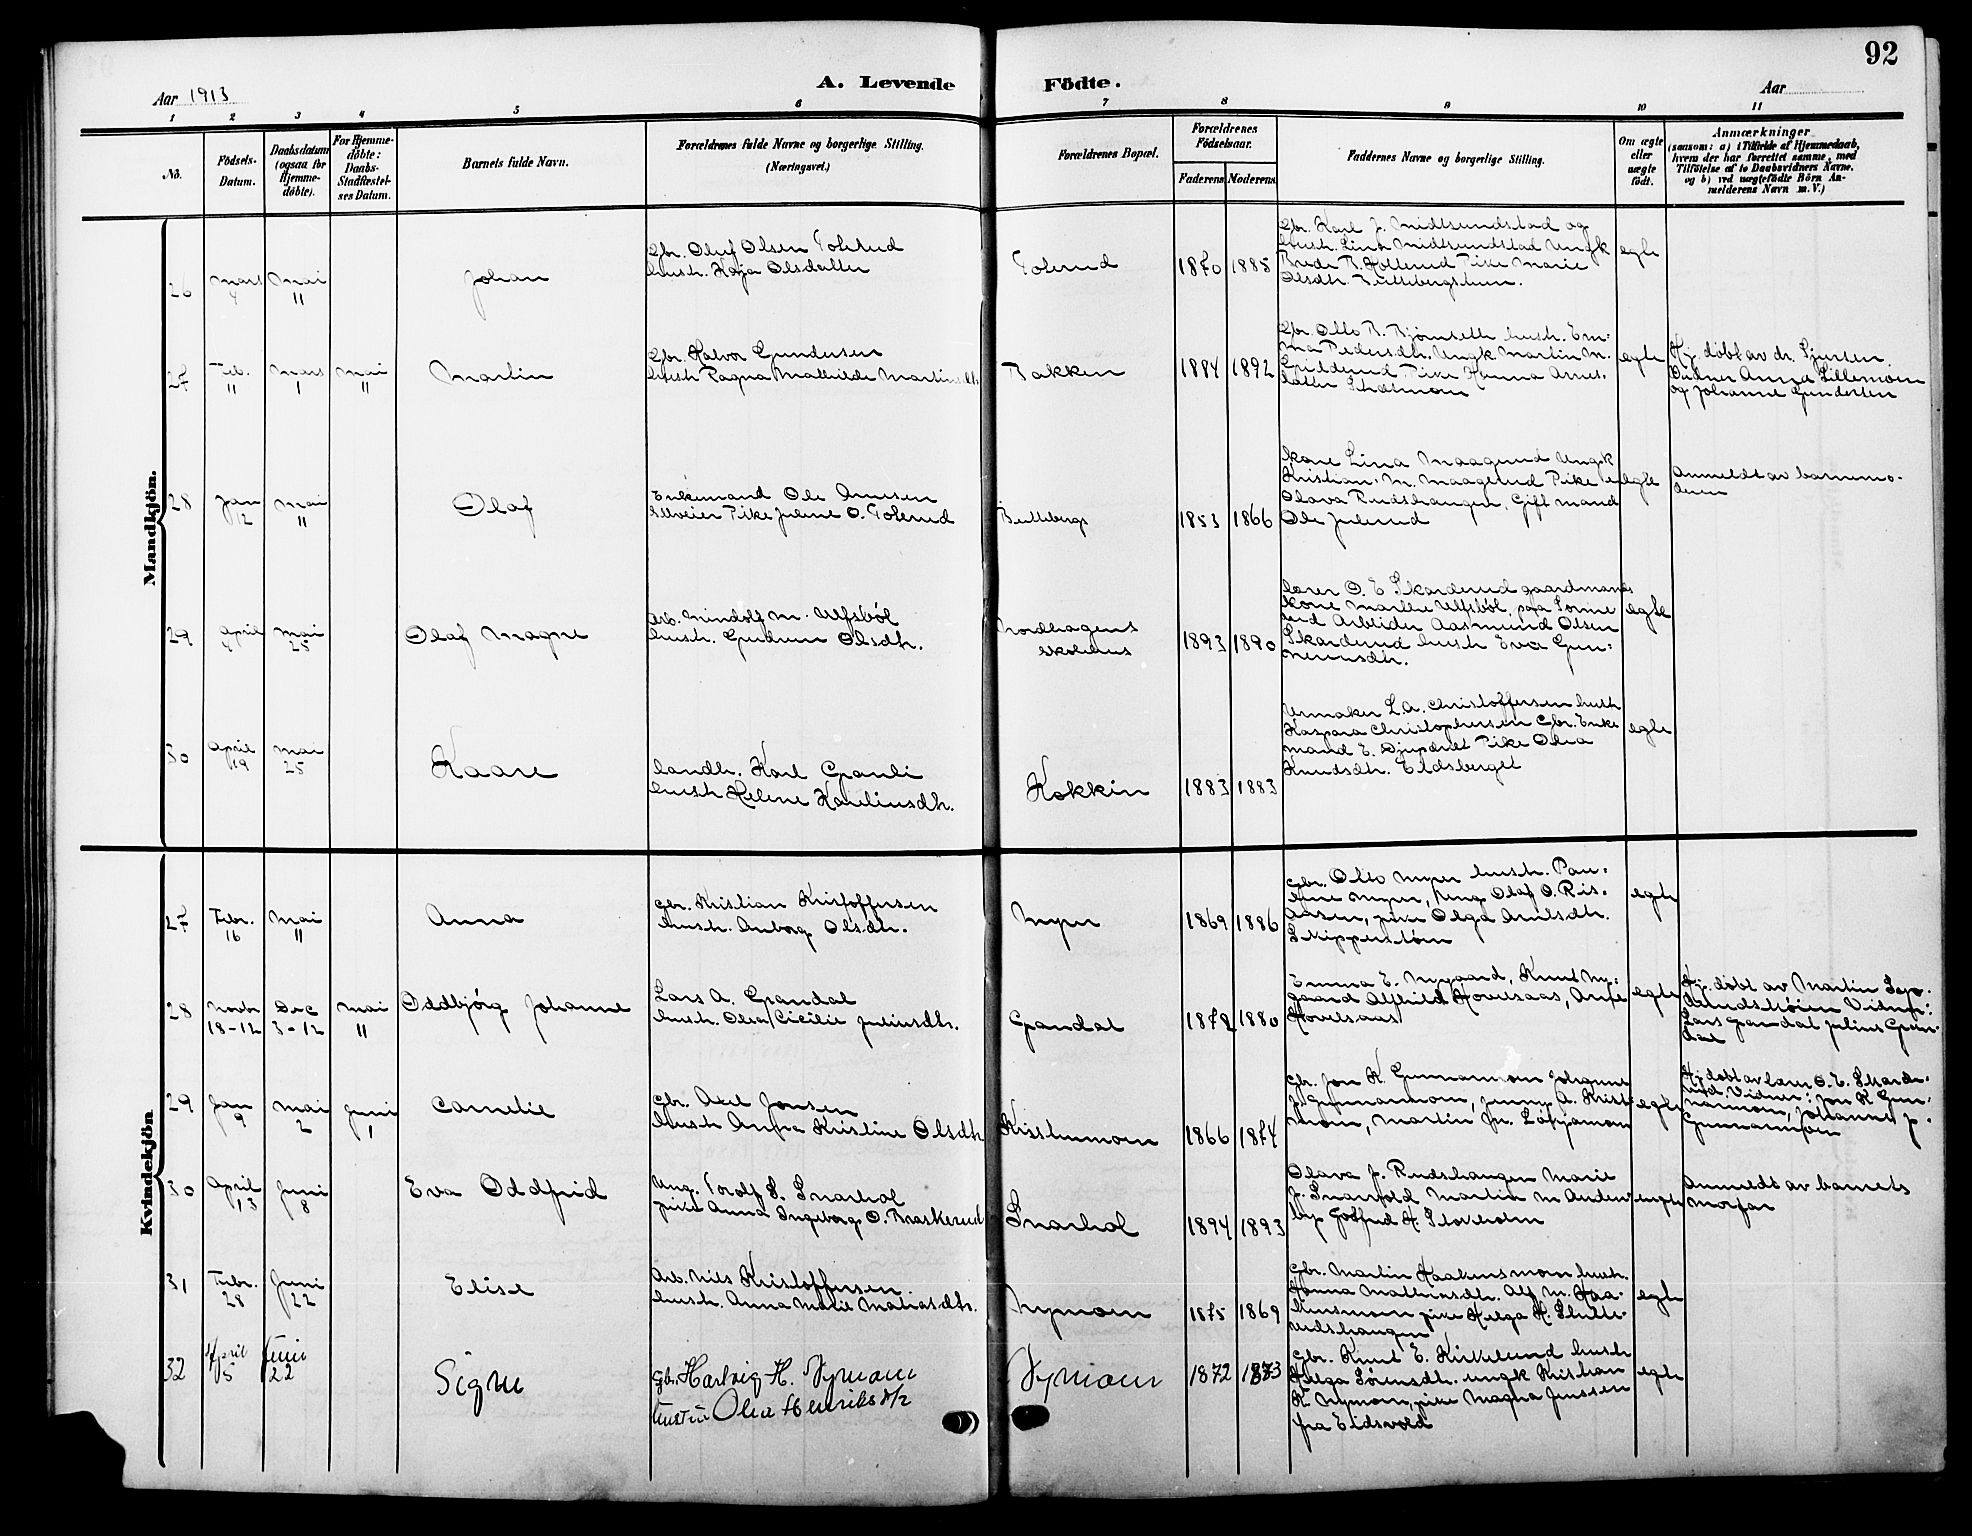 92
A. Levende Födte.
Aar 1913
Aar
1 2 3 4 5 6 7 8 9 10 11
No.
Födsels-
Datum.
Daabsdatum
(ogsaa for
Hjemme-
döbte).
For Hjemme-
döbte:
Daabs-
Stadfæstel-
ses Datum.
Barnets fulde Navn.
Forældrenes fulde Navne og borgerlige Stilling.
(Næringsvei.)
Forældrenes Bopæl.
Forældrenes
Födselsaar.
Faderens Moderens
Faddernes Navne og borgerlige Stilling.
Om ægte
eller
uægte
födt.
Anmærkninger
(saasom: a) i Tilfælde af Hjemmedaab,
hvem der har forrettet samme, med
Tilföielse af to Daabsvidners Navne,
og b) ved uægtefödte Börn An-
melderens Navn m. V.)
Mandkjön.
26
Mars
4
Mai
11
Johan
Gbr. Oluf Olsen Toserud
hustr. Kaja Olsdatter
Toserud
1870 1885
Gbr. Karl J. Midtsundstad og
hustr. Lina Midtsundstad Ungk
Olsdtr.
egte
27
Feb.
11
Mars
1
Mai
11
Martin
Gbr. Halvor Gundersen
hustr Ragna Mathilde Martinsdtr
Bakken
1884 1892
Gbr. Otto B. Bjørnseth hustr. Em-
ma Pedersdtr. Ungk Martin M.
Pike Hanna Arnes-
datter
egte
Hj. døbt av dr. Sjursen
Vidner Anna Lillemoen
og Johanne Gundersen
28
Jan
12
Mai
11
Olaf
Enkemand Ole Arnesen
Pike Juline O. Toserud
1853 1866
kone Lina Maagerud Ungk
Kristian M. Maagerud Pike
Olava Rudshaugen, Gift mand
Ole Julsrud
Anmeldt av barnemo-
deren
29
April
4
Mai
25
Olaf Magne
Arb. Mindolf M. Ulfsbøl
hustr. Gudrun Olsdtr.
Nordhagens
skolehus
1893 1890
lærer O. E. Skarderud gaardmands
kone Marthe Ulfsbøl,
Arbeider Aasmund Olsen
Skarderud hustr Eva Gun-
nerusdtr.
egte
30
April
19
Mai
25
Kaare
landh. Karl Granli
hustr Helene Karelinsdtr.
Kokkin
1883 1883
Urmaker L. A. Christoffersen hustr
Kaspara Christophersen Gbr. Enke
mand E. Djupdret Pike Olea
Knudsdtr. Eldsberget
egte
Kvindekjön
27
Febr.
16
Mai
11
Anna
Gbr. Kristian Kristoffersen
hustr. Anborg Olsdtr.
Myer
1869 1886
Gbr. Otto Myer hustr. Pau-
line Myer, Ung Olaf O. Ris-
aasen, pike Olga Arnesdtr.
egte
28
Novbr
18-12
Dec
3-12
Mai
11
Oddbjørg Johanne
Lars A. Grandal
hustr. Olea Cicilie Juliusdtr.
Grandal
1879 1880
Emma E. Nygaard, Knut Ny-
gaard Alfhild Hovelsaas, Arne
Hovelsaas
egte
Hj. døbt av Martin Sep.
Vidner:
Lars Grandal Julius Gran-
dal
29
Jan
9
Mai
2
Juni
1
Cornelie
Gbr. Axel Jonsen
hustr Anna Kristine Olsdtr
Kristiermoen
1866 1874
Gbr. Jon K. Gunnarmoen Johanne
J. Gunnarmoen, Jenny A. Krist-
moen, Martin
egte
Hj døbt av lærer O. E. Skarde-
rud. Vidner: Jon K Gun-
narmoen, Johanne J.
Gunnarmoen
30
April
13
Juni
8
Eva Oddfrid
Ung. Torolf S. Snarhol
pike Anna Ingeborg O. Braskerud
Snarhol
1894 1893
Olava J. Rudshaugen Marie
J. Snarvold Martin M Anders-
by Gotfred H. Stokholm
uegte
Anmeldt av barnets
morfar
31
Febr.
28
Juni
22
Elise
Arb. Nils Kristoffersen
hustr. Anna Marie Matiasdtr.
Nymoen
1875 1869
Gbr. Martin Haakensmoen hustr.
Hanna Mathiasdtr. Alf M. Haa-
kensmoen pike Helga H.
egte
32
April
5
Juni
22
Signe
Gbr. Hartvig H. Nymoen
hustru Olea Henriksd/r
Nymoen
1872 1873
Gbr. Knut E. Kirkelund hustr
Helga Sørensdtr. ungk Kristian
K. Nymoen, pike Magna Jenssen
fra Eidsvold
egte